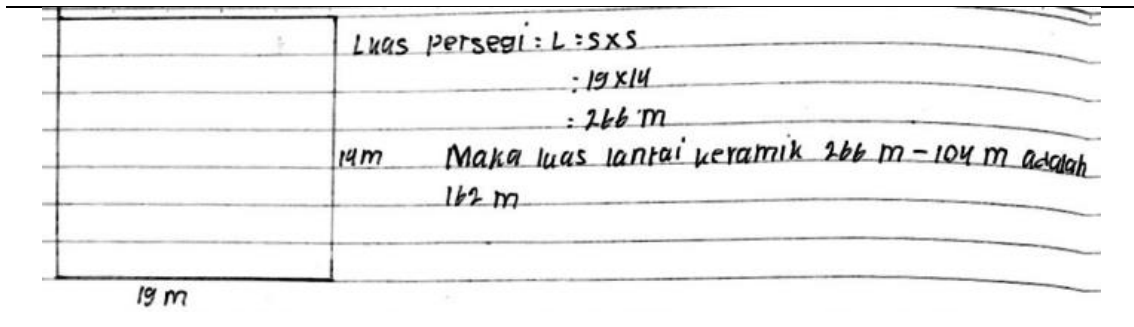 Luas persegi : L : s x s
: 19 x 14
: 266 m
14 m Maka luas lantai keramik 266 m - 104 m adalah
162 m
19 m